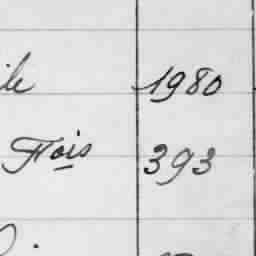 ile 1980
Fois 393